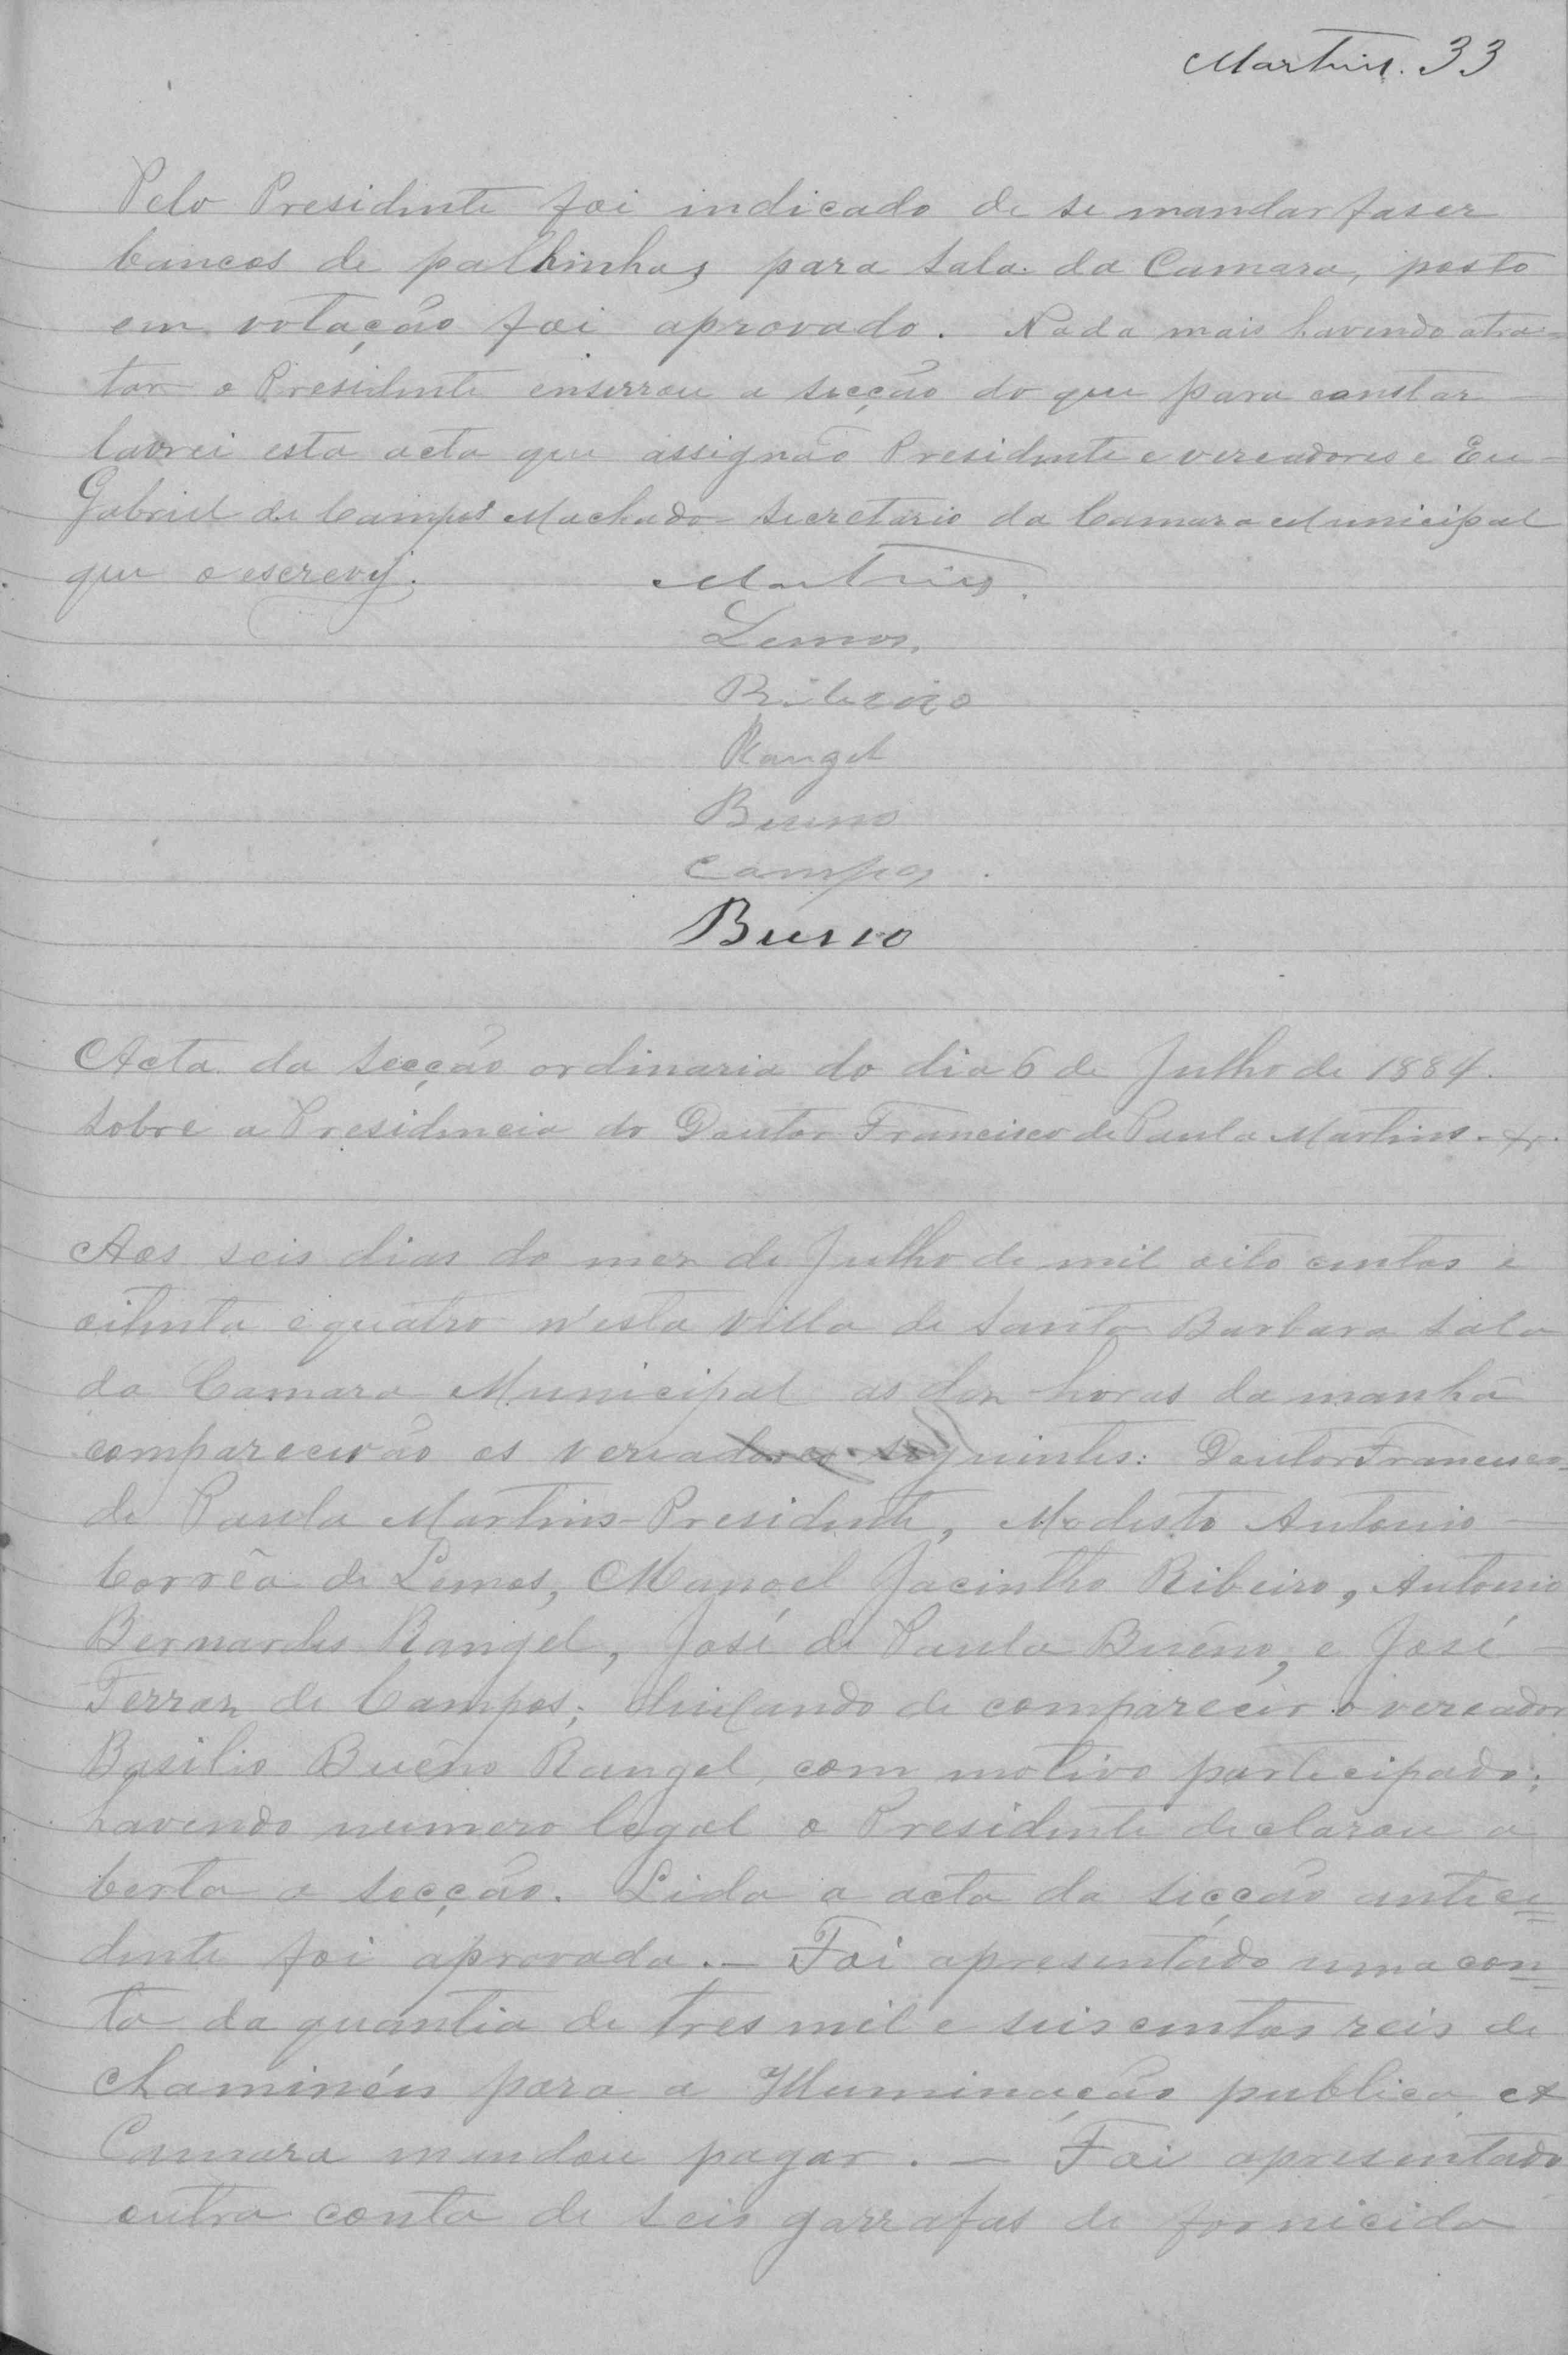 Martins. 33
Pelo Presidente foi indicado de se mandar faser
bancos de palhinhas para sala da Camara, posto
em votação foi aprovado. Nada mais havendo atra-
tar o Presidente enserrou a secção do que para constar
lavrei esta acta que assignão Presidente e vereadores e Eu
Gabriel de Campos Machado secretario da Camara Municipal
que o escrevy.
Martins.
Lemos.
Ribeiro
Rangel
Bueno
Campos.
Bueno
Acta da secção ordinaria do dia 6 de Julho de 1884.
sobre a Presidencia do Doutor Francisco de Paula Martins.
Aos seis dias do mez de Julho de mil oito centos e
oitenta e quatro n'esta villa de Santa Barbara sala
da Camara Municipal as dez horas da manhã
comparecerão os vereadores seguintes: Doutor Francisco
de Paula Martins-Presidente, Modesto Antonio
Corrêa de Lemos, Manoel Jacintho Ribeiro, Antonio
Bernardes Rangel, José de Paula Buêno, e José
Ferraz de Campos; deixando de comparecer o vereador
Basilio Buêno Rangel, com motivo participado;
havendo numero legal o Presidente declarou a
berta a secção. Lida a acta da secção antece=
dente foi aprovada. — Foi apresentado uma con=
ta da quantia de tres mil e seis centos reis de
chaminéis para a Illuminação publica A
Camara mandou pagar. — Foi apresentado
outra conta de seis garrafas de fornicida